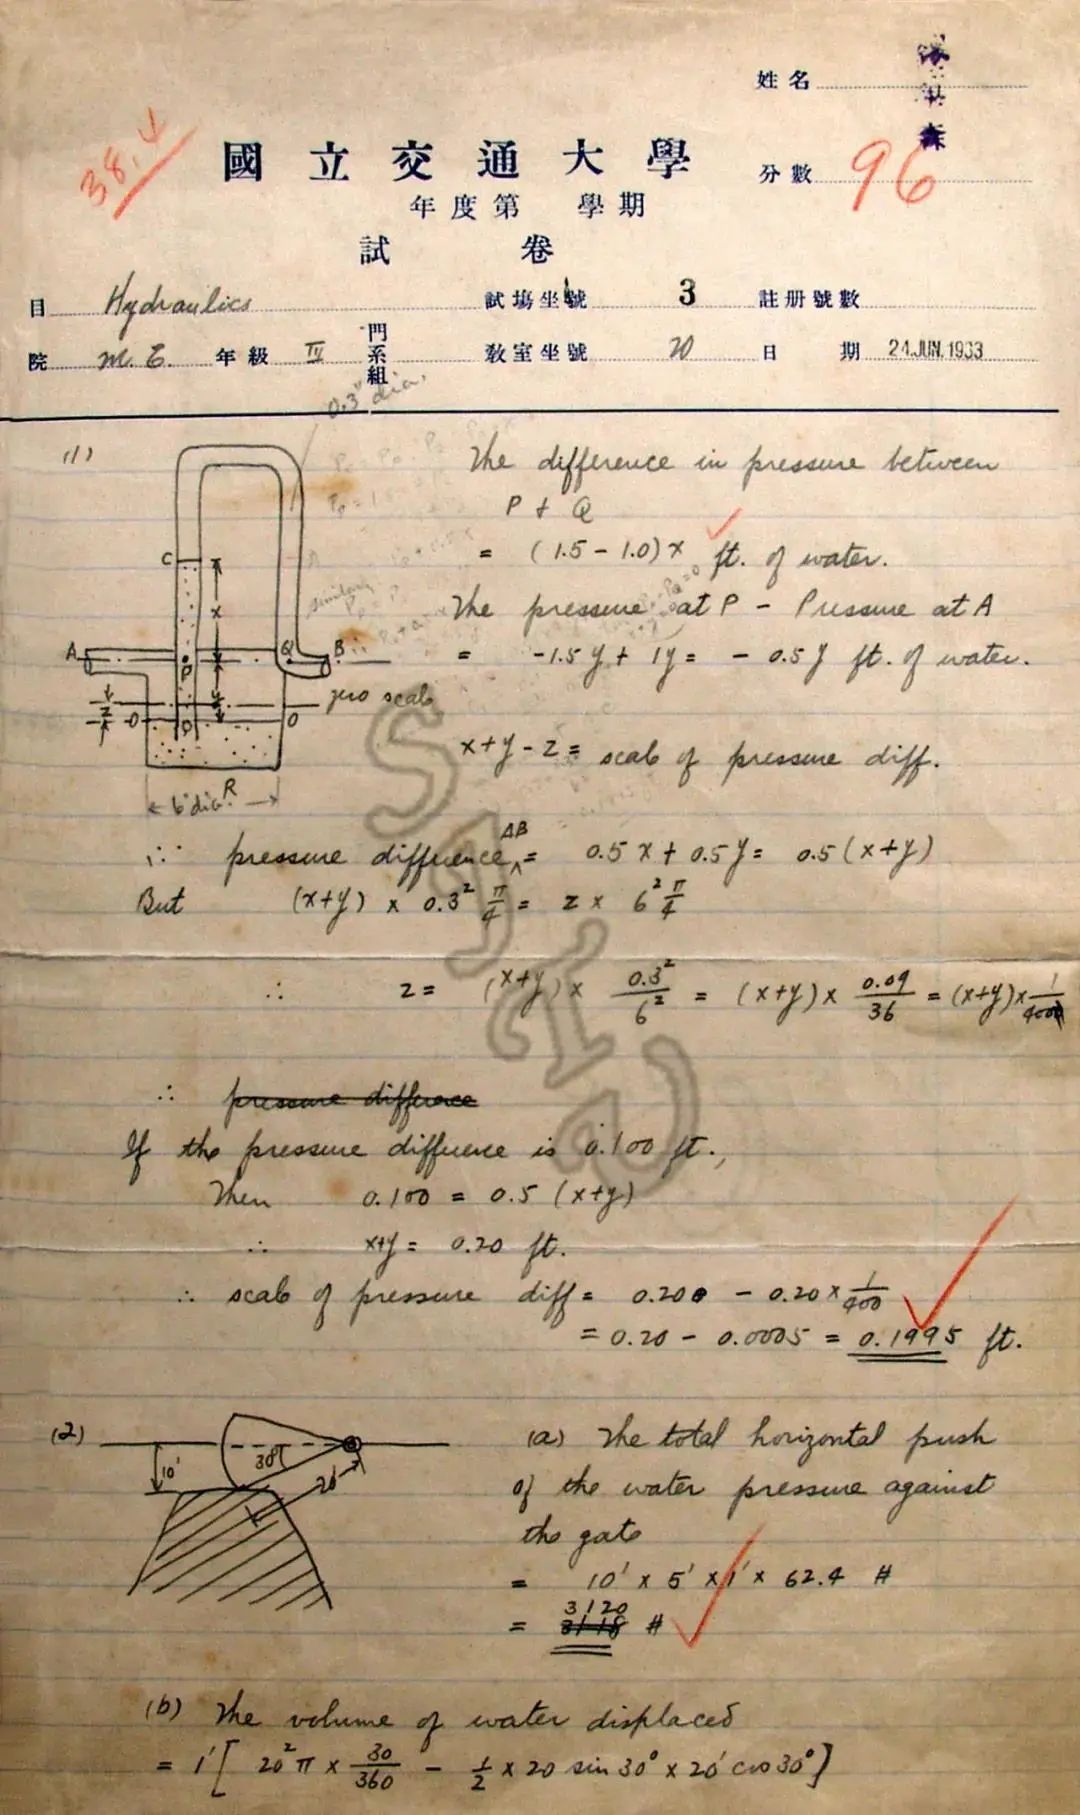 姓名
38.4
國立交通大學
分數 96
年度第 學期
試卷
目 Hydraulics 試場坐號 3 註册號數
院 M.E. 年級 IV 門系組 教室坐號 20 日期 24.JUN.1933
0.3" dia.
(1)
The difference in pressure between
P + Q
= (1.5 - 1.0) x ft. of water.
The pressure at P - Pressure at A
= -1.5y + 1y = - 0.5y ft. of water.
C
x
A P Q B
y
zero scale
z O O
R
6" dia.
x+y-z = scale of pressure diff.
∴ pressure difference AB = 0.5x + 0.5y = 0.5(x+y)
But (x+y) x 0.3² π/4 = z x 6² π/4
∴ z = (x+y) x 0.3²/6² = (x+y) x 0.09/36 = (x+y) x 1/400
∴ pressure difference
If the pressure difference is 0.100 ft.,
Then 0.100 = 0.5 (x+y)
∴ x+y = 0.20 ft.
∴ scale of pressure diff = 0.200 - 0.20 x 1/400
= 0.20 - 0.0005 = 0.1995 ft.
SJTU
(2)
10'
30°
20'
(a) The total horizontal push
of the water pressure against
the gate
= 10' x 5' x 1' x 62.4 #
3120
= 3118 #
(b) The volume of water displaced
= 1' [ 20² π x 30/360 - 1/2 x 20 sin 30° x 20' cos 30° ]